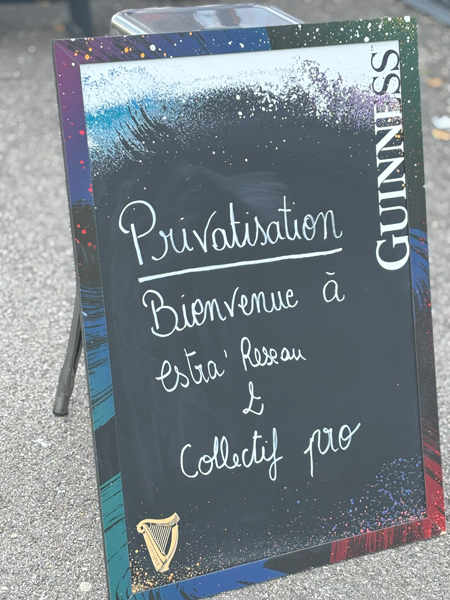 GUINNESS
Privatisation
Bienvenue à
estra' Reseau
&
Collectif pro